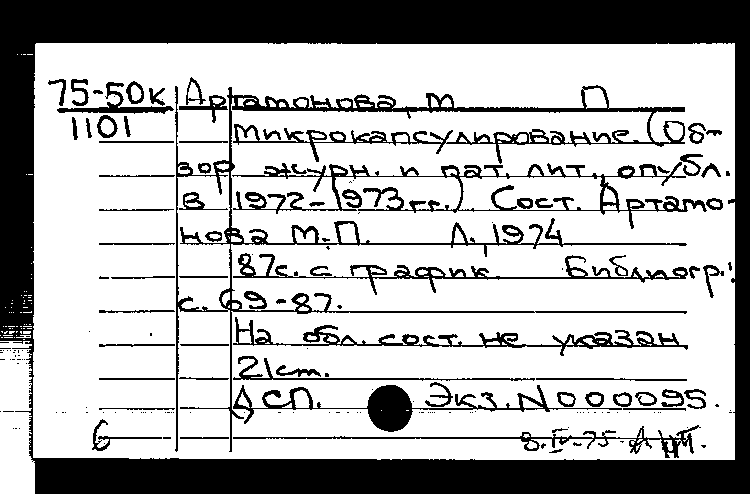 75-50к Артамонова, М П
1101 Микрокапсулирование. (Об-
зор журн. и пат. лит., опубл.
в 1972-1973гг.) Сост. Артамо-
нова М.П. Л., 1974
87с. с график. Библиогр.:
с. 69-87.
На обл. сост. не указан.
21см.
СП. Экз. N 000095.
6 8.IV-75